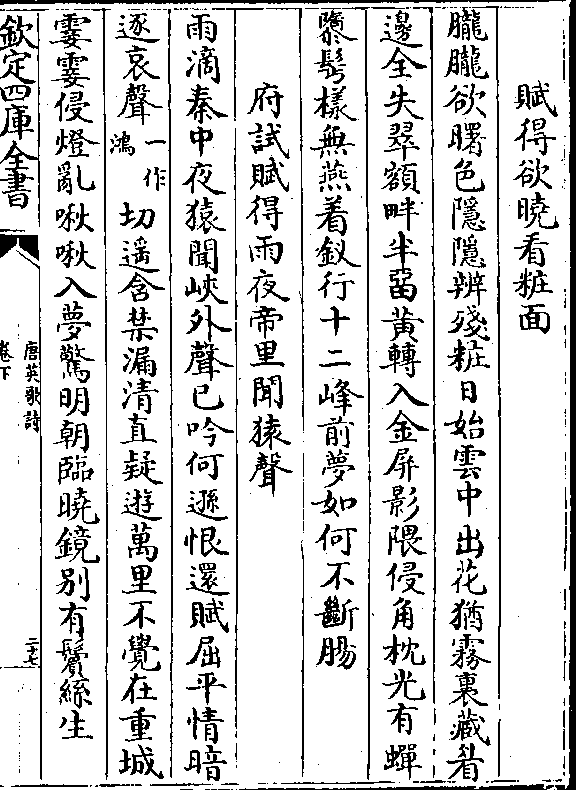 賦得欲曉看粧面
朧朧欲曙色隱隱辨殘粧日始雲中出花猶霧裏藏眉
邊全失翠額畔半畱黄轉入金屏影隈侵角枕光有蟬
隳髩樣無燕着釵行十二峰前夢如何不斷腸
府試賦得雨夜帝里聞猿聲
雨滴秦中夜猿聞峽外聲已吟何遜恨還賦屈平情暗
逐哀聲一作鴻切遥含禁漏清直疑遊萬里不覺在重城
霎霎侵燈亂啾啾入夢驚明朝臨曉鏡别有鬢絲生
欽定四庫全書
唐英歌詩
卷下
二十七